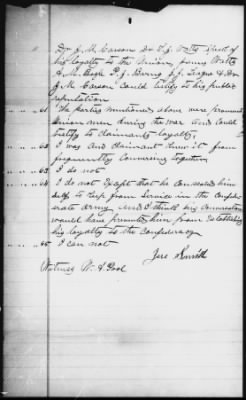 Dr J. M. Carson Dr. T. J. Potts Spoke of
his loyalty to the Union, Jonas Watts
A. M. Cagle P. J. Waring J. J. League & Dr
J. M. Carson Could testify to his public
reputation
61 The parties mentioned above were prominent
Union men during the war and could
testify to claimants loyalty.
62 I was and claimant knew it from
frequently conversing together
63 I do not
64 I do not Except that he concealed him
self to keep from service in the Confed-
erate Army and I think any conversation
would have prevented him from Establishing
his loyalty to the Confederacy
65 I can not
Jess Smith
Witness W. A.